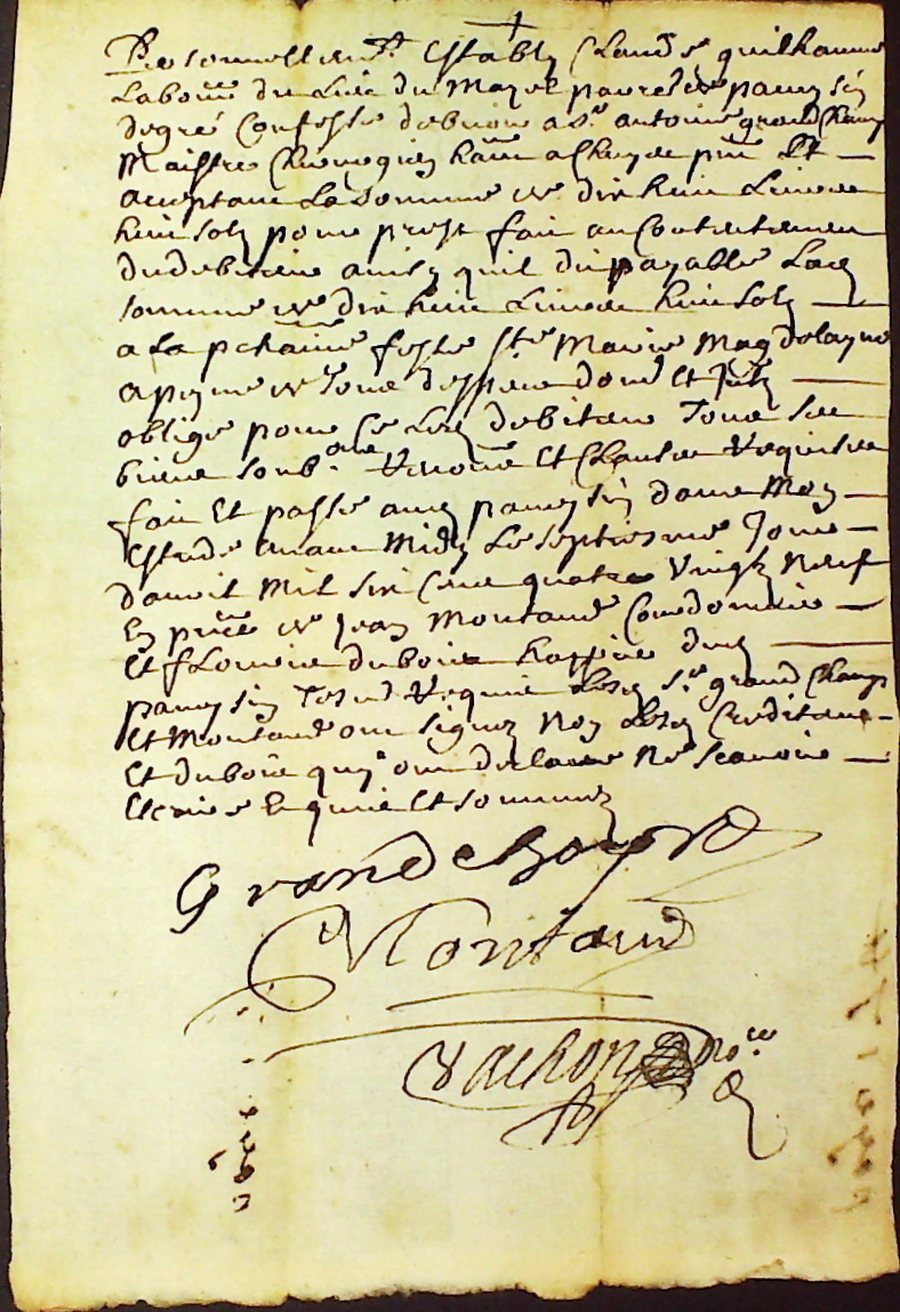 Personnellemt establi Claude guilhaume
Labour du Lieu du Mazel parroisse
de gre Confesse debvoir a Sr antoine grandChamp
Maistre Chirurgien
acceptant La Somme de dix huit Livres
huit solz pour prest fait au Contentement
du debiteur ainsy quil dit payable Lad
somme de dix huit Livres huit solz
a La pchaine feste Ste Marie Magdelayne
a peyne de tous despens dom et
oblige pour Ce Led debiteur Tous ses
biens soubz et Clauses Requises
fait Et passe aud
Estude avant Midy Le septiesme Jour
davril Mil six Cens quatre Vingtz Neuf
En pnce de Jean Montaud Cordonnier
Et fLorens duboix dud
Tesm Requis Lesd Sr grand Champ
Et Montaud ont signez Non Led
Et duboix quy ont declare Ne Scavoir
Escrire Enquis Et sommez
Grandchamp
Montaud
Vachon nore